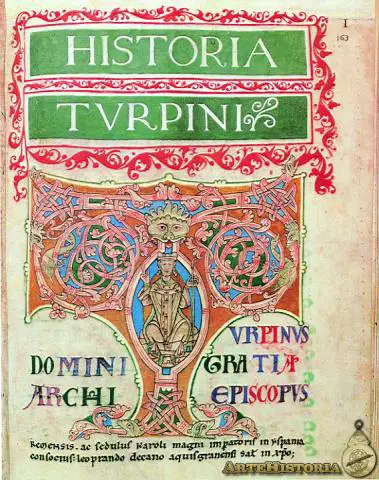 I
163
HISTORIA
TVRPINI
T
VRPINVS
DOMINI GRATIA
ARCHI EPISCOPVS
REMENSIS. ac sedulus karoli magni imperatoris in yspania
consocius: leoprando decano aquisgranensi salt in xpo;
ARTEHISTORIA